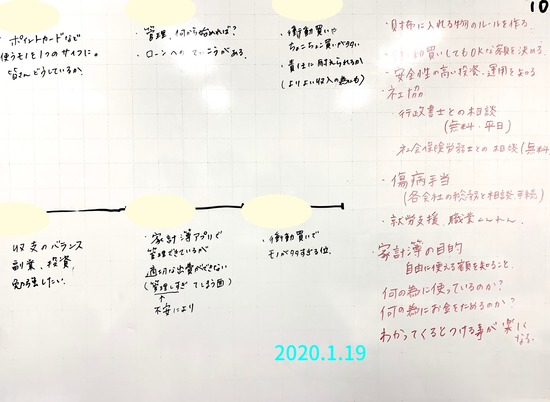 ・ポイントカードなど
使うモノを1つのサイフに。
皆さんどうしているか。
・管理、何から始めれば?
・ローンへの ていこうがある。
・衝動買いや
ちょこちょこ買いが多い
・責任に耐えられるか
(よりよい収入の為にも)
10
・財布に入れる物のルールを作る。
買いしてもOKな額を決める。
・安全性の高い投資、運用を知る
・社協
・行政書士との相談
(無料・平日)
社会保険労務士との相談(無料
・傷病手当
(各会社の総務と相談、手続)
・就労支援、職業くんれん
・家計簿の目的
自由に使える額を知ること。
何の為に使っているのか?
何の為にお金をためるのか?
わかってくるとつける事が楽に
なる。
収支のバランス
副業、投資、
勉強したい。
・家計簿アプリで
管理できているが
適切な出費ができない
(管理しすぎてしまう面)
↑
不安により
・衝動買いで
モノが多すぎる位。
2020.1.19